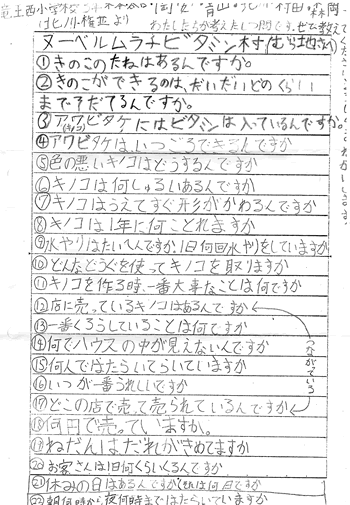 竜王西小学校
わたしたちが考えたしつ問です。ぜひ教えて
ヌーベルムラチビタミン村(むら地さん)
①きのこのたねはあるんですか。
②きのこができるのは、だいだいどのくらい
までそだてるんですか。
③アワビタケにはビタミンは入っているんですか。
(きのこ)
④アワビタケは、いつごろできるんですか
⑤色の悪いキノコはどうするんですか
⑥キノコは何しゅるいあるんですか
⑦キノコはうえてすぐ形がかわるんですか
⑧キノコは1年に何ことれますか
⑨水やりはたいへんですか、1日何回水やりをしていますか
⑩どんなどうぐを使ってキノコを取りますか
⑪キノコを作る時、一番大事なことは何ですか
⑫店に売っているキノコはあるんですか
⑬一番くろうしていることは何ですか
⑭何でハウスの中が見えないんですか
⑮何人ではたらいてらいていますか
⑯いつが一番うれしいですか
⑰どこの店で売って売られているんですか
つながている
⑱何円で売っていますか。
⑲ねだんはだれがきめてますか
⑳お客さんは1日何くらいくるんですか
㉑休みの日はあるんですか(それは何日ですか
㉒朝何時から夜何時まではたらいていますか